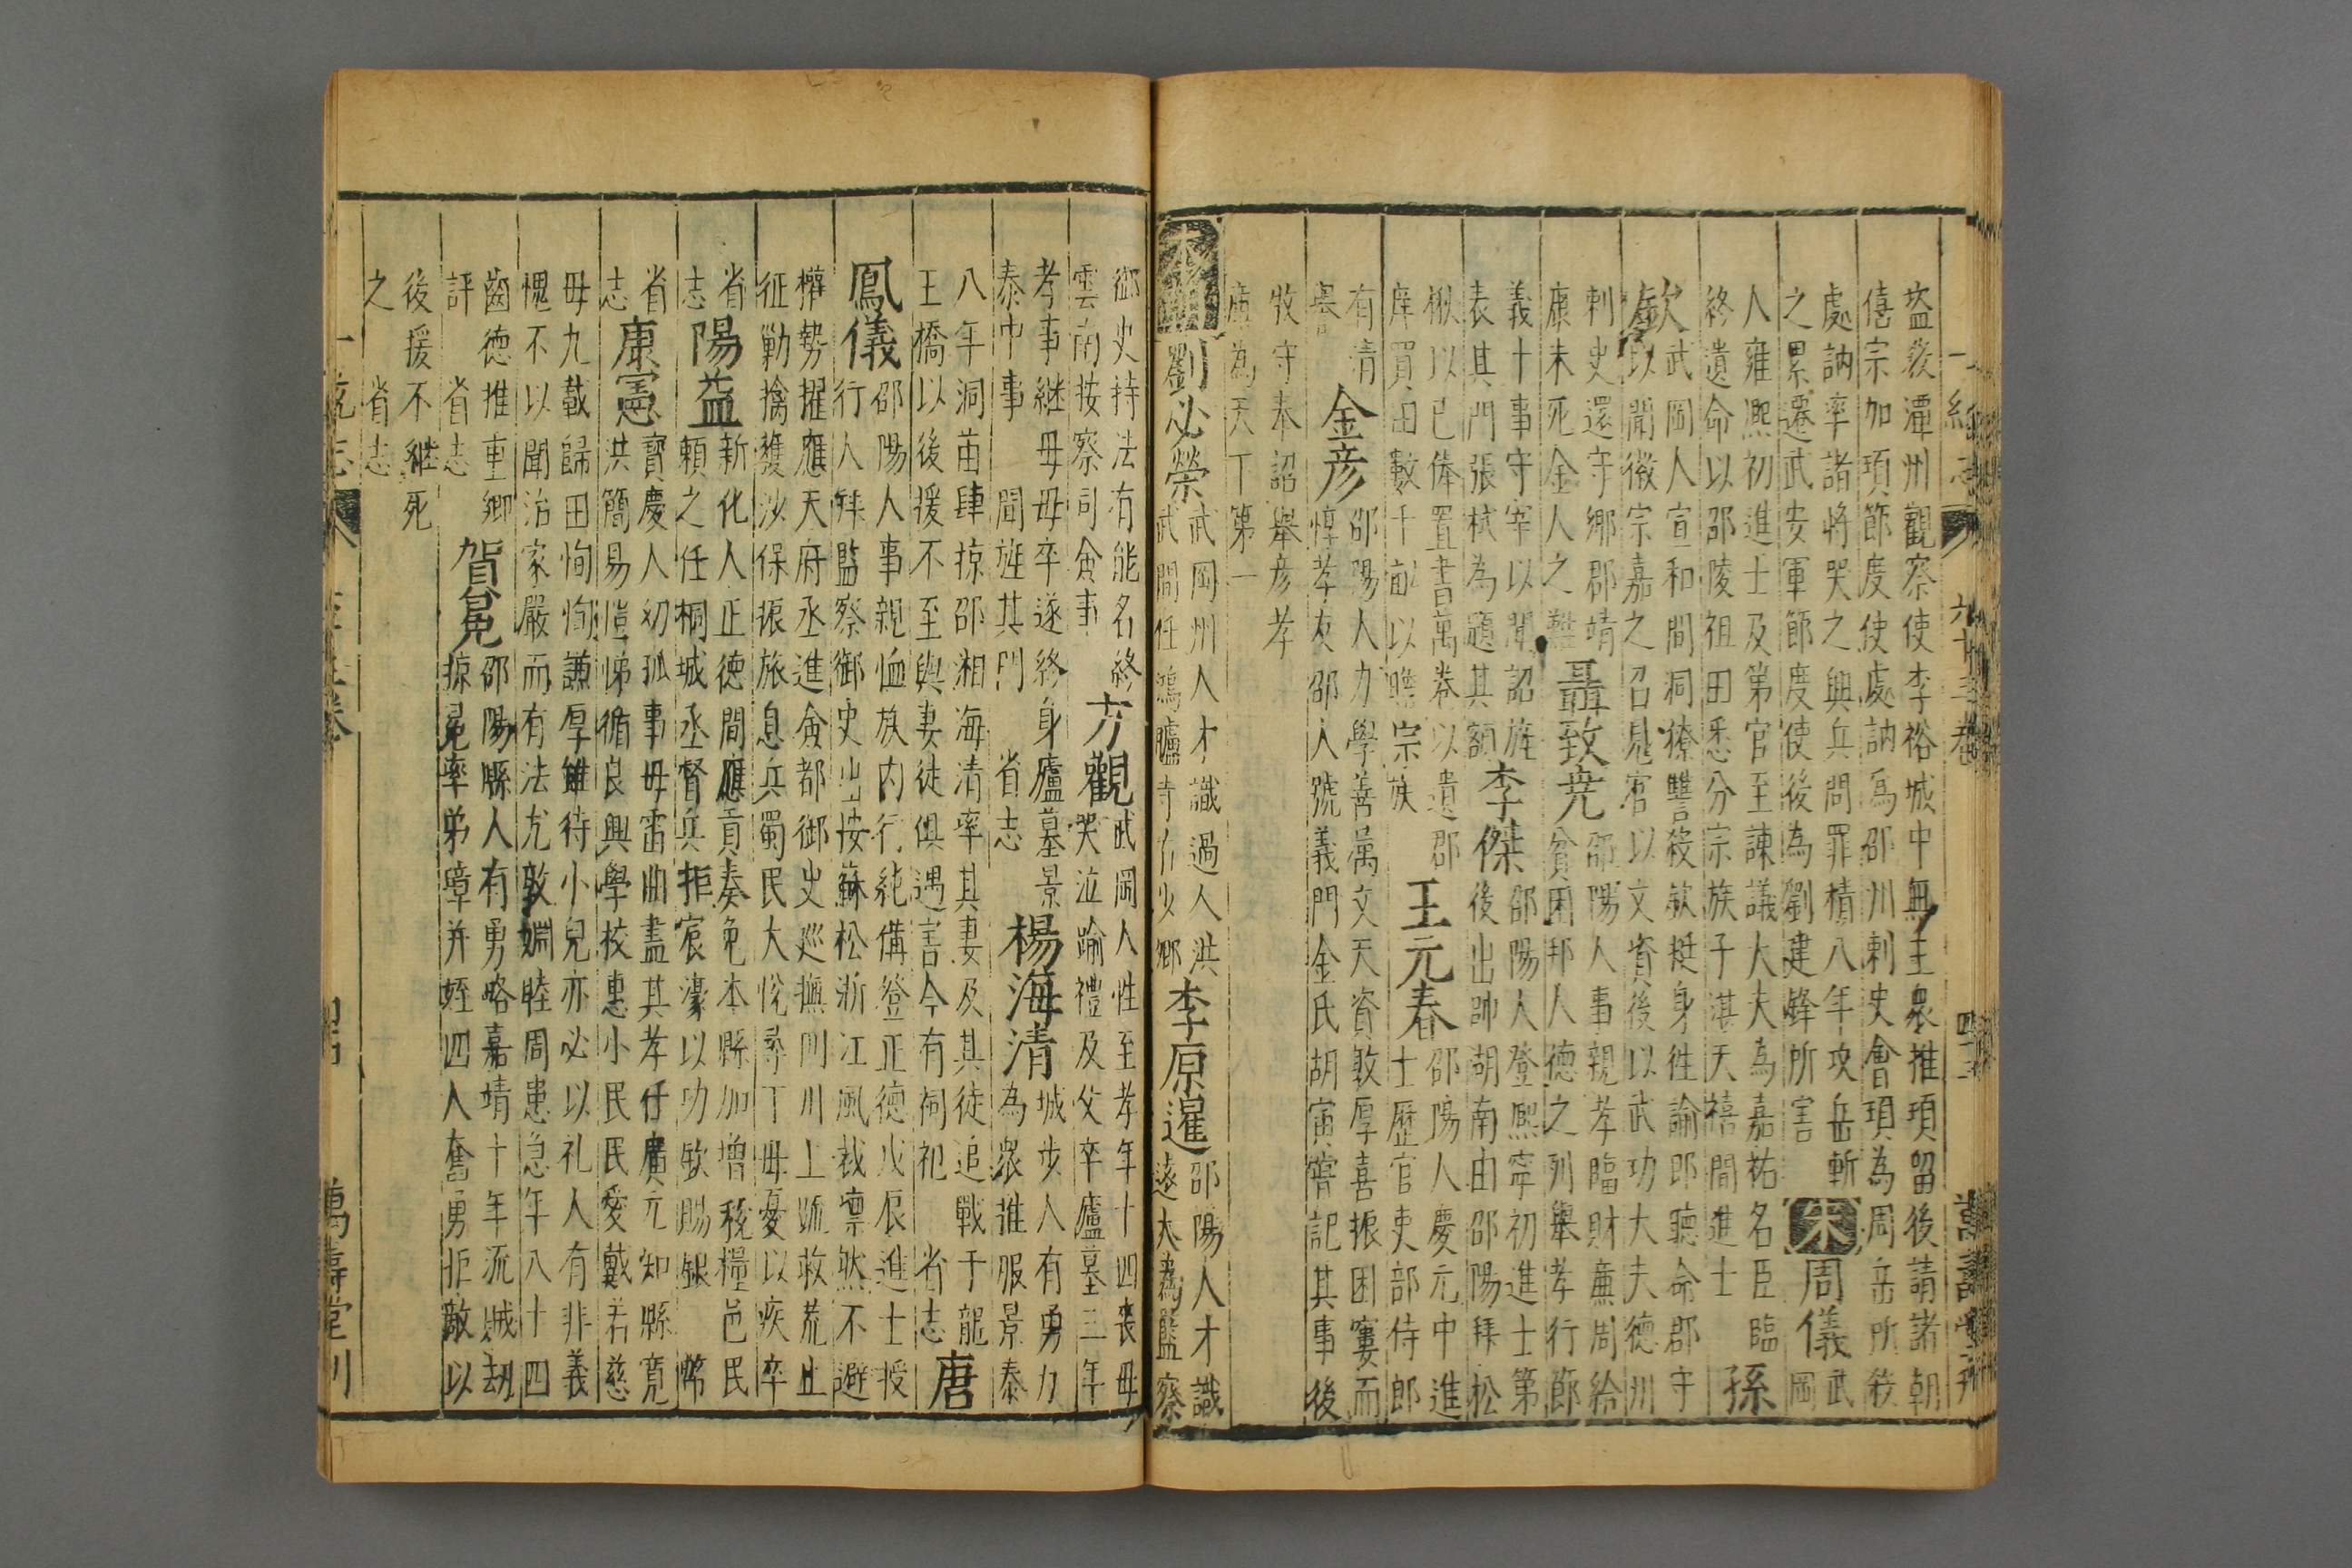 一統志 六十三卷 四十二 萬壽堂刊
盜後潭州觀察使李裕城中無主衆推頊留後請諸朝
僖宗加頊節度使處訥為邵州刺史會頊為周岳所殺
處訥率諸將哭之與兵問罪積八年攻岳斬
之累遷武安軍節度使後為劉建鋒所害
宋
周儀
武
岡
人雍熙初進士及第官至諫議大夫為嘉祐名臣臨
終遺命以邵陵祖田悉分宗族子湛天禧間進士
孫
欽
武岡人宣和間洞獠讐殺欽挺身徃諭即聽命郡守
以聞徽宗嘉之召見宿以文資後以武功大夫德州
刺史還守鄉郡靖
康未死金人之難
聶致尭
邵陽人事親孝臨財廉周給
貧困邦人德之列舉孝行節
義十事守宰以聞詔旌
表其門張栻為題其額
李傑
邵陽人登熈寧初進士第
後出帥湖南由邵陽拜松
楸以已俸置書萬券以遺郡
庠買田數千畝以贍宗族
王元春
邵陽人慶元中進
士歷官吏部侍郎
有清
譽
金彦
邵陽人力學善屬文天資敦厚喜振困窶而
惇孝友邵人號義門金氏胡寅嘗記其事後
牧守奉詔舉彦孝
廉為天下第一
本朝
劉必榮
武岡州人才識過人洪
武間任鴻臚寺右少卿
李原暹
邵陽人才識
遠大為監察
御史持法有能名終
雲南按察司僉事
方觀
武岡人性至孝年十四喪母
哭泣踰禮及父卒廬墓三年
孝事継母母卒遂終身廬墓景
泰中事聞旌其門 省志
楊海清
城步人有勇力
為衆推服景泰
八年洞苗肆掠邵湘海清率其妻及其徒追戰于龍
王橋以後援不至與妻徒俱遇害今有祠祀 省志
唐
鳳儀
邵陽人事親恤族内行純備登正德戊辰進士授
行人擢監察御史出按蘇松浙江風裁凛然不避
權勢擢應天府丞進僉都御史廵撫四川上疏救荒止
征勦擒獲沙保振旅息兵蜀民大悅尋丁母憂以疾卒
省
志
陽益
新化人正德間應貢奏免本縣加增稅糧邑民
頼之任桐城丞督兵拒宸濠以功欽賜銀幣
省
志
康憲
寳慶人㓜孤事母甾曲盡其孝仕廣元知縣寛
洪簡易愷悌循良興學校惠小民民愛戴若慈
母九載歸田恂恂謙厚雖待小兒亦必以礼人有非義
愧不以聞治家嚴而有法尤敦婣睦周患急年八十四
齒德推重鄉
評 省志
賀冕
邵陽縣人有勇略嘉靖十年流賊刼
掠冕率弟璋并姪四人奮勇拒敵以
後援不継死
之 省志
一統志 萬壽堂刊